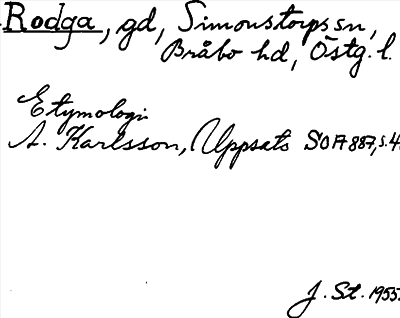 Rodga, gd, Simonstorps sn,
Bråbo hd, Östg. l.
Etymologi
A. Karlsson, Uppsats SOFA 887, s. 4.
J. St. 1955.